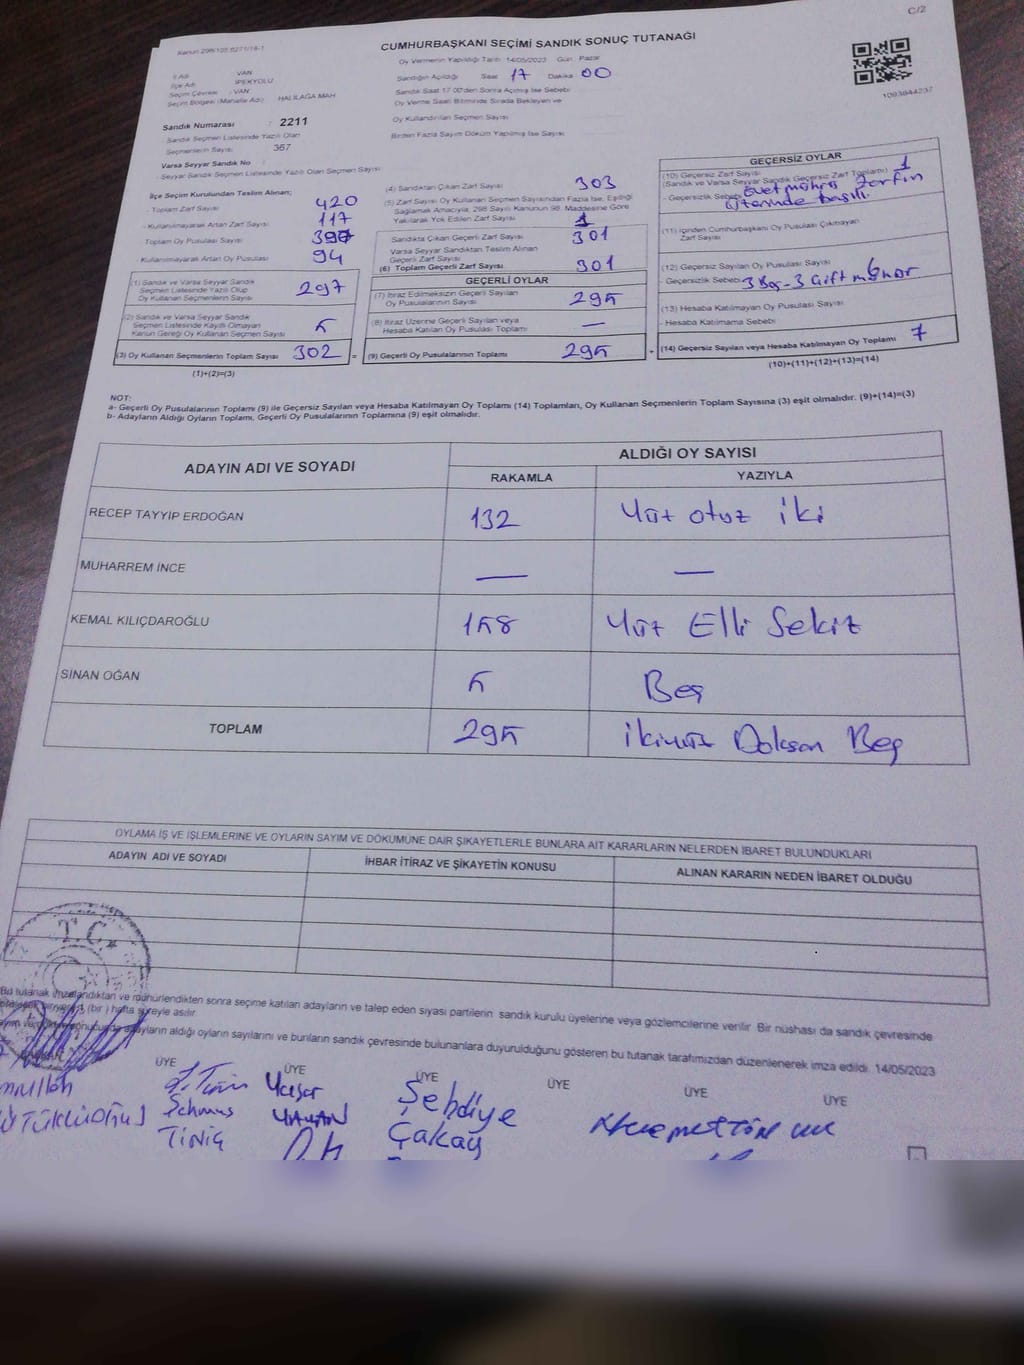 C/2
Kanun 298/105 6271/18-1
CUMHURBAŞKANI SEÇİMİ SANDIK SONUÇ TUTANAĞI
İl Adı VAN
İlçe Adı İPEKYOLU
Seçim Çevresi : VAN
Seçim Bölgesi (Mahalle Adı) HALİLAĞA MAH
Sandık Numarası : 2211
Sandık Seçmen Listesinde Yazılı Olan
Seçmenlerin Sayısı 367
Varsa Seyyar Sandık No :
Seyyar Sandık Seçmen Listesinde Yazılı Olan Seçmen Sayısı
Oy Vermenin Yapıldığı Tarih 14/05/2023 Gün Pazar
Sandığın Açıldığı Saat 17 Dakika 00
Sandık Saat 17 00'den Sonra Açılmış İse Sebebi
Oy Verme Saati Bitiminde Sırada Bekleyen ve
Oy Kullandırılan Seçmen Sayısı
Birden Fazla Sayım Döküm Yapılmış İse Sayısı
1093944237
İlçe Seçim Kurulundan Teslim Alınan;
- Toplam Zarf Sayısı 420
- Kullanılmayarak Artan Zarf Sayısı 117
Toplam Oy Pusulası Sayısı
Kullanılmayarak Artan Oy Pusulası 94
(1) Sandık ve Varsa Seyyar Sandık
Seçmen Listesinde Yazılı Olup
Oy Kullanan Seçmenlerin Sayısı 297
(2) Sandık ve Varsa Seyyar Sandık
Seçmen Listesinde Kayıtlı Olmayan
Kanun Gereği Oy Kullanan Seçmen Sayısı 5
(3) Oy Kullanan Seçmenlerin Toplam Sayısı 302
(1)+(2)=(3)
(4) Sandıktan Çıkan Zarf Sayısı 303
(5) Zarf Sayısı Oy Kullanan Seçmen Sayısından Fazla İse, Eşitliği
Sağlamak Amacıyla, 298 Sayılı Kanunun 98. Maddesine Göre
Yakılarak Yok Edilen Zarf Sayısı 1
Sandıkta Çıkan Geçerli Zarf Sayısı 301
Varsa Seyyar Sandıktan Teslim Alınan
Geçerli Zarf Sayısı
(6) Toplam Geçerli Zarf Sayısı 301
GEÇERLİ OYLAR
(7) İtiraz Edilmeksizin Geçerli Sayılan
Oy Pusulalarının Sayısı 295
(8) İtiraz Üzerine Geçerli Sayılan veya
Hesaba Katılan Oy Pusulası Toplamı —
(9) Geçerli Oy Pusulalarının Toplamı 295
GEÇERSİZ OYLAR
(10) Geçersiz Zarf Sayısı 1
(Sandık ve Varsa Seyyar Sandık Geçersiz Zarf Toplamı)
- Geçersizlik Sebebi Evet mührü zarfın
üzerinde basılı.
(11) İçinden Cumhurbaşkanı Oy Pusulası Çıkmayan
Zarf Sayısı
(12) Geçersiz Sayılan Oy Pusulası Sayısı 6
- Geçersizlik Sebebi 3 Boş - 3 Çift mühür
(13) Hesaba Katılmayan Oy Pusulası Sayısı
- Hesaba Katılmama Sebebi
(14) Geçersiz Sayılan veya Hesaba Katılmayan Oy Toplamı 7
(10)+(11)+(12)+(13)=(14)
NOT:
a- Geçerli Oy Pusulalarının Toplamı (9) ile Geçersiz Sayılan veya Hesaba Katılmayan Oy Toplamı (14) Toplamları, Oy Kullanan Seçmenlerin Toplam Sayısına (3) eşit olmalıdır. (9)+(14)=(3)
b- Adayların Aldığı Oyların Toplamı, Geçerli Oy Pusulalarının Toplamına (9) eşit olmalıdır.
ADAYIN ADI VE SOYADI
ALDIĞI OY SAYISI
RAKAMLA YAZIYLA
RECEP TAYYİP ERDOĞAN 132 Yüz otuz iki
MUHARREM İNCE — —
KEMAL KILIÇDAROĞLU 158 Yüz Elli Sekiz
SİNAN OĞAN 5 Beş
TOPLAM 295 ikiyüz Doksan Beş
OYLAMA İŞ VE İŞLEMLERİNE VE OYLARIN SAYIM VE DÖKÜMÜNE DAİR ŞİKAYETLERLE BUNLARA AİT KARARLARIN NELERDEN İBARET BULUNDUKLARI
ADAYIN ADI VE SOYADI İHBAR İTİRAZ VE ŞİKAYETİN KONUSU ALINAN KARARIN NEDEN İBARET OLDUĞU
T.C.
Bu tutanak imzalandıktan ve mühürlendikten sonra seçime katılan adayların ve talep eden siyasi partilerin sandık kurulu üyelerine veya gözlemcilerine verilir. Bir nüshası da sandık çevresinde
(bir) hafta süreyle asılır.
adayların aldığı oyların sayılarını ve bunların sandık çevresinde bulunanlara duyurulduğunu gösteren bu tutanak tarafımızdan düzenlenerek imza edildi. 14/05/2023
ÜYE ÜYE ÜYE ÜYE ÜYE ÜYE
Yaşar
Şehdiye
Çakay